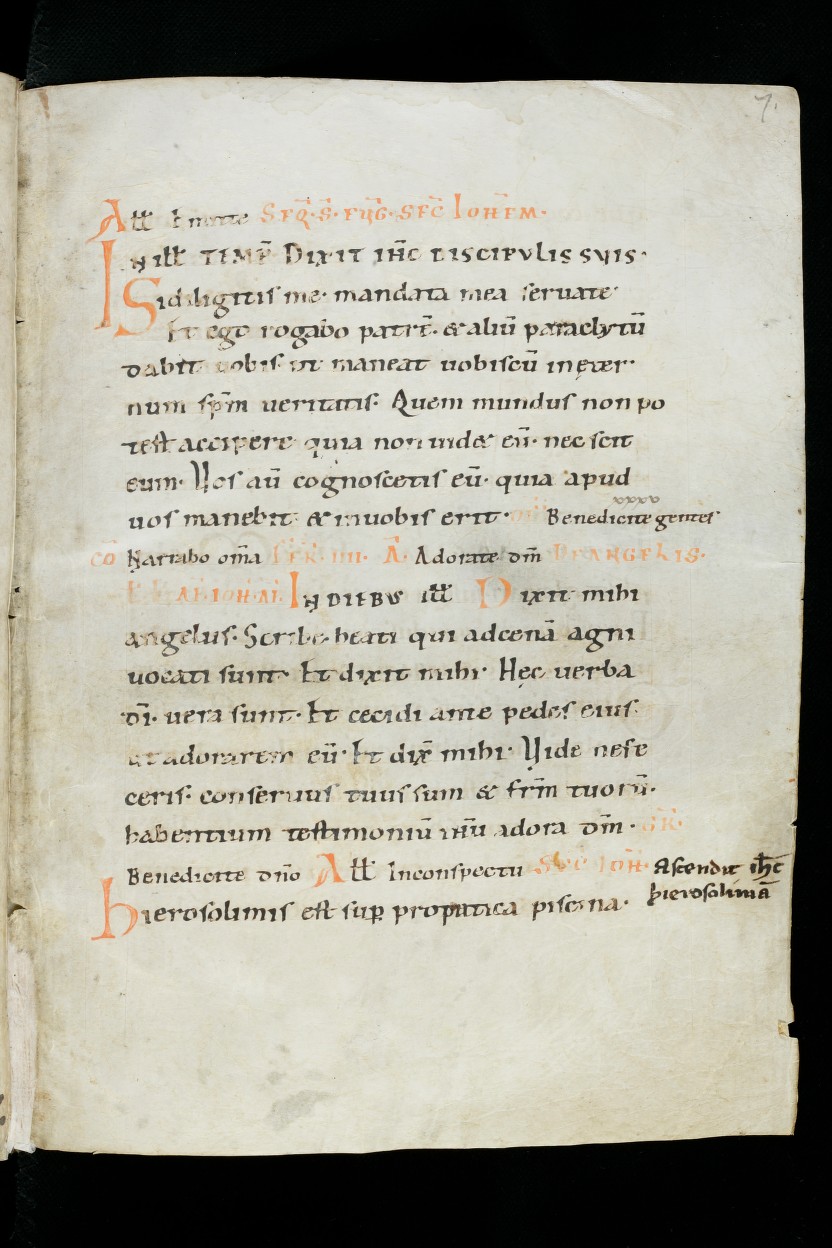 7.
All̅ Emitte SEQ̅·S̅·EṼG·SEC̅ IOHE̅M·
IN ill̅ TEMP̅ DIXIT IH̅C DISCIPVLIS SVIS·
Sidiligitis me· mandata mea seruate
Et ego rogabo patre̅· & aliu̅ paraclytu̅
dabit uobis ut maneat uobiscu̅ ineter
num sp̅m ueritatis· Quem mundus non po
test accipere quia non uid& eu̅· nec scit
eum· Vos au̅ cognoscetis eu̅· quia apud
uos manebit & inuobis erit· Benedicite gentes
co̅ Narrabo om̅a A̅· Adorate dm̅ ANGELIS·
IN DIEBVS ill̅ Dixit mihi
angelus· Scribe beati qui adcena̅ agni
uocati sunt· Et dixit mihi· Hęc uerba
di̅· uera sunt· Et cecidi ante pedes eius
ut adorarem eu̅· Et dix̅ mihi· Vide nefe
ceris· conseruus tuus sum & fr̅m tuoru̅·
habentium testimoniu̅ ih̅u adora dm̅· GR̅·
Benedicite dn̅o All̅ Inconspectu SEC̅ IOH̅· Ascendit ih̅c
hierosolima̅
hierosolimis est sup̱ propatica piscina·